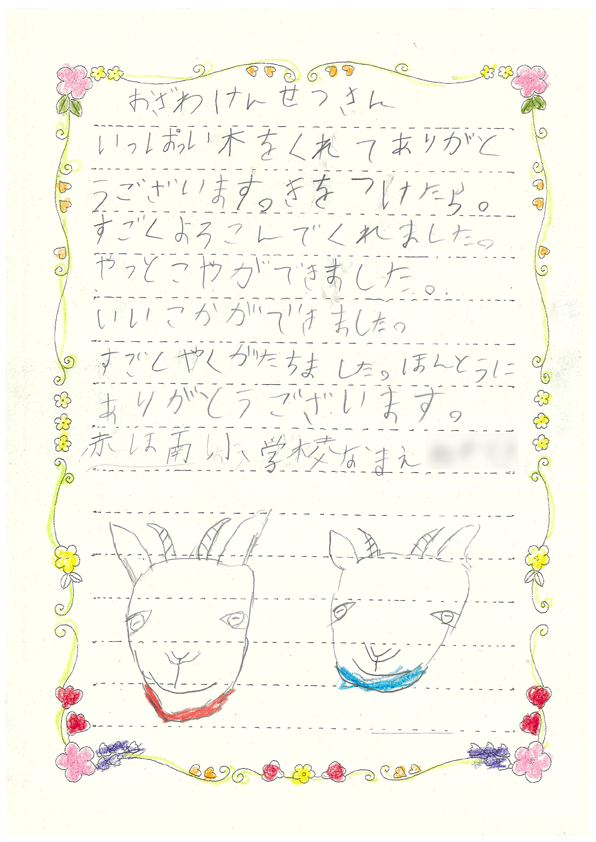 おざわけんせつさん
いっぱい木をくれてありがと
うございます。きをつけたら。
すごくよろこんでくれました。
やっとこやができました。
いいこやができました。
すごくやくだちました。ほんとうに
ありがとうございます。
赤は南小学校なまえ